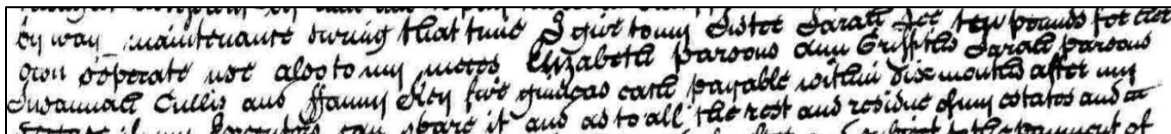 by way maintenance during that time I give to my Sister Sarah Fee ten pounds for her
own seperate use also to my nieces Elizabeth Parsons Ann Griffiths Sarah Parsons
Susannah Cullis and ffanny Key five guineas each payable within six months after my
my Executors can spare it and as to all the rest and residue of my estates and
subject to the payment of